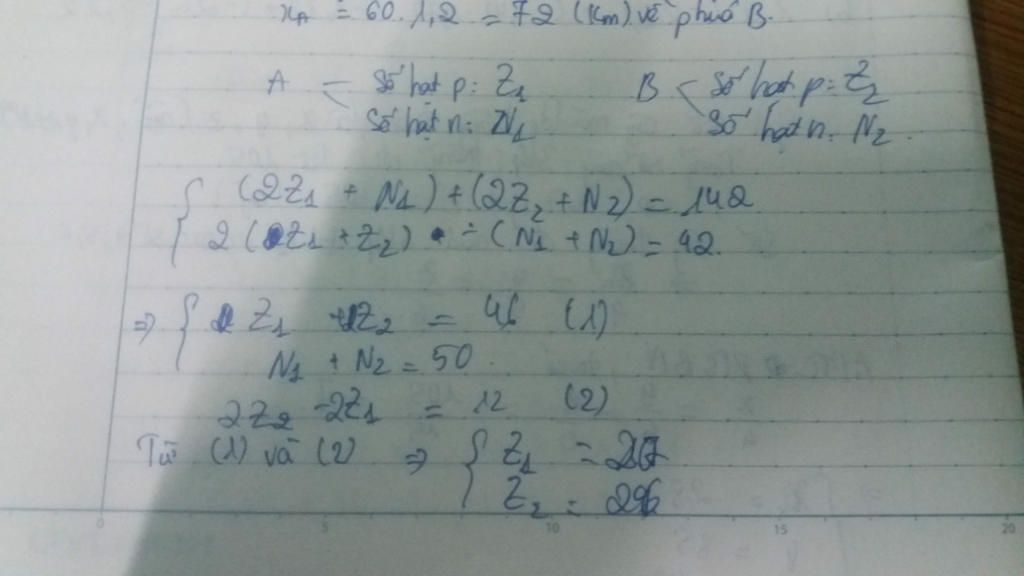 x_A = 60. 1,2 = 72 (km) về phía B.
A Số hạt p: Z₁ B Số hạt p: Z₂
Số hạt n: N₁ Số hạt n: N₂.
(2Z₁ + N₁) + (2Z₂ + N₂) = 142
2(Z₁ + Z₂) - (N₁ + N₂) = 42.
⇒ { Z₁ + Z₂ = 46 (1)
N₁ + N₂ = 50.
2Z₂ - 2Z₁ = 12 (2)
Từ (1) và (2) ⇒ { Z₁ =
Z₂ = 26
0 5 10 15 20